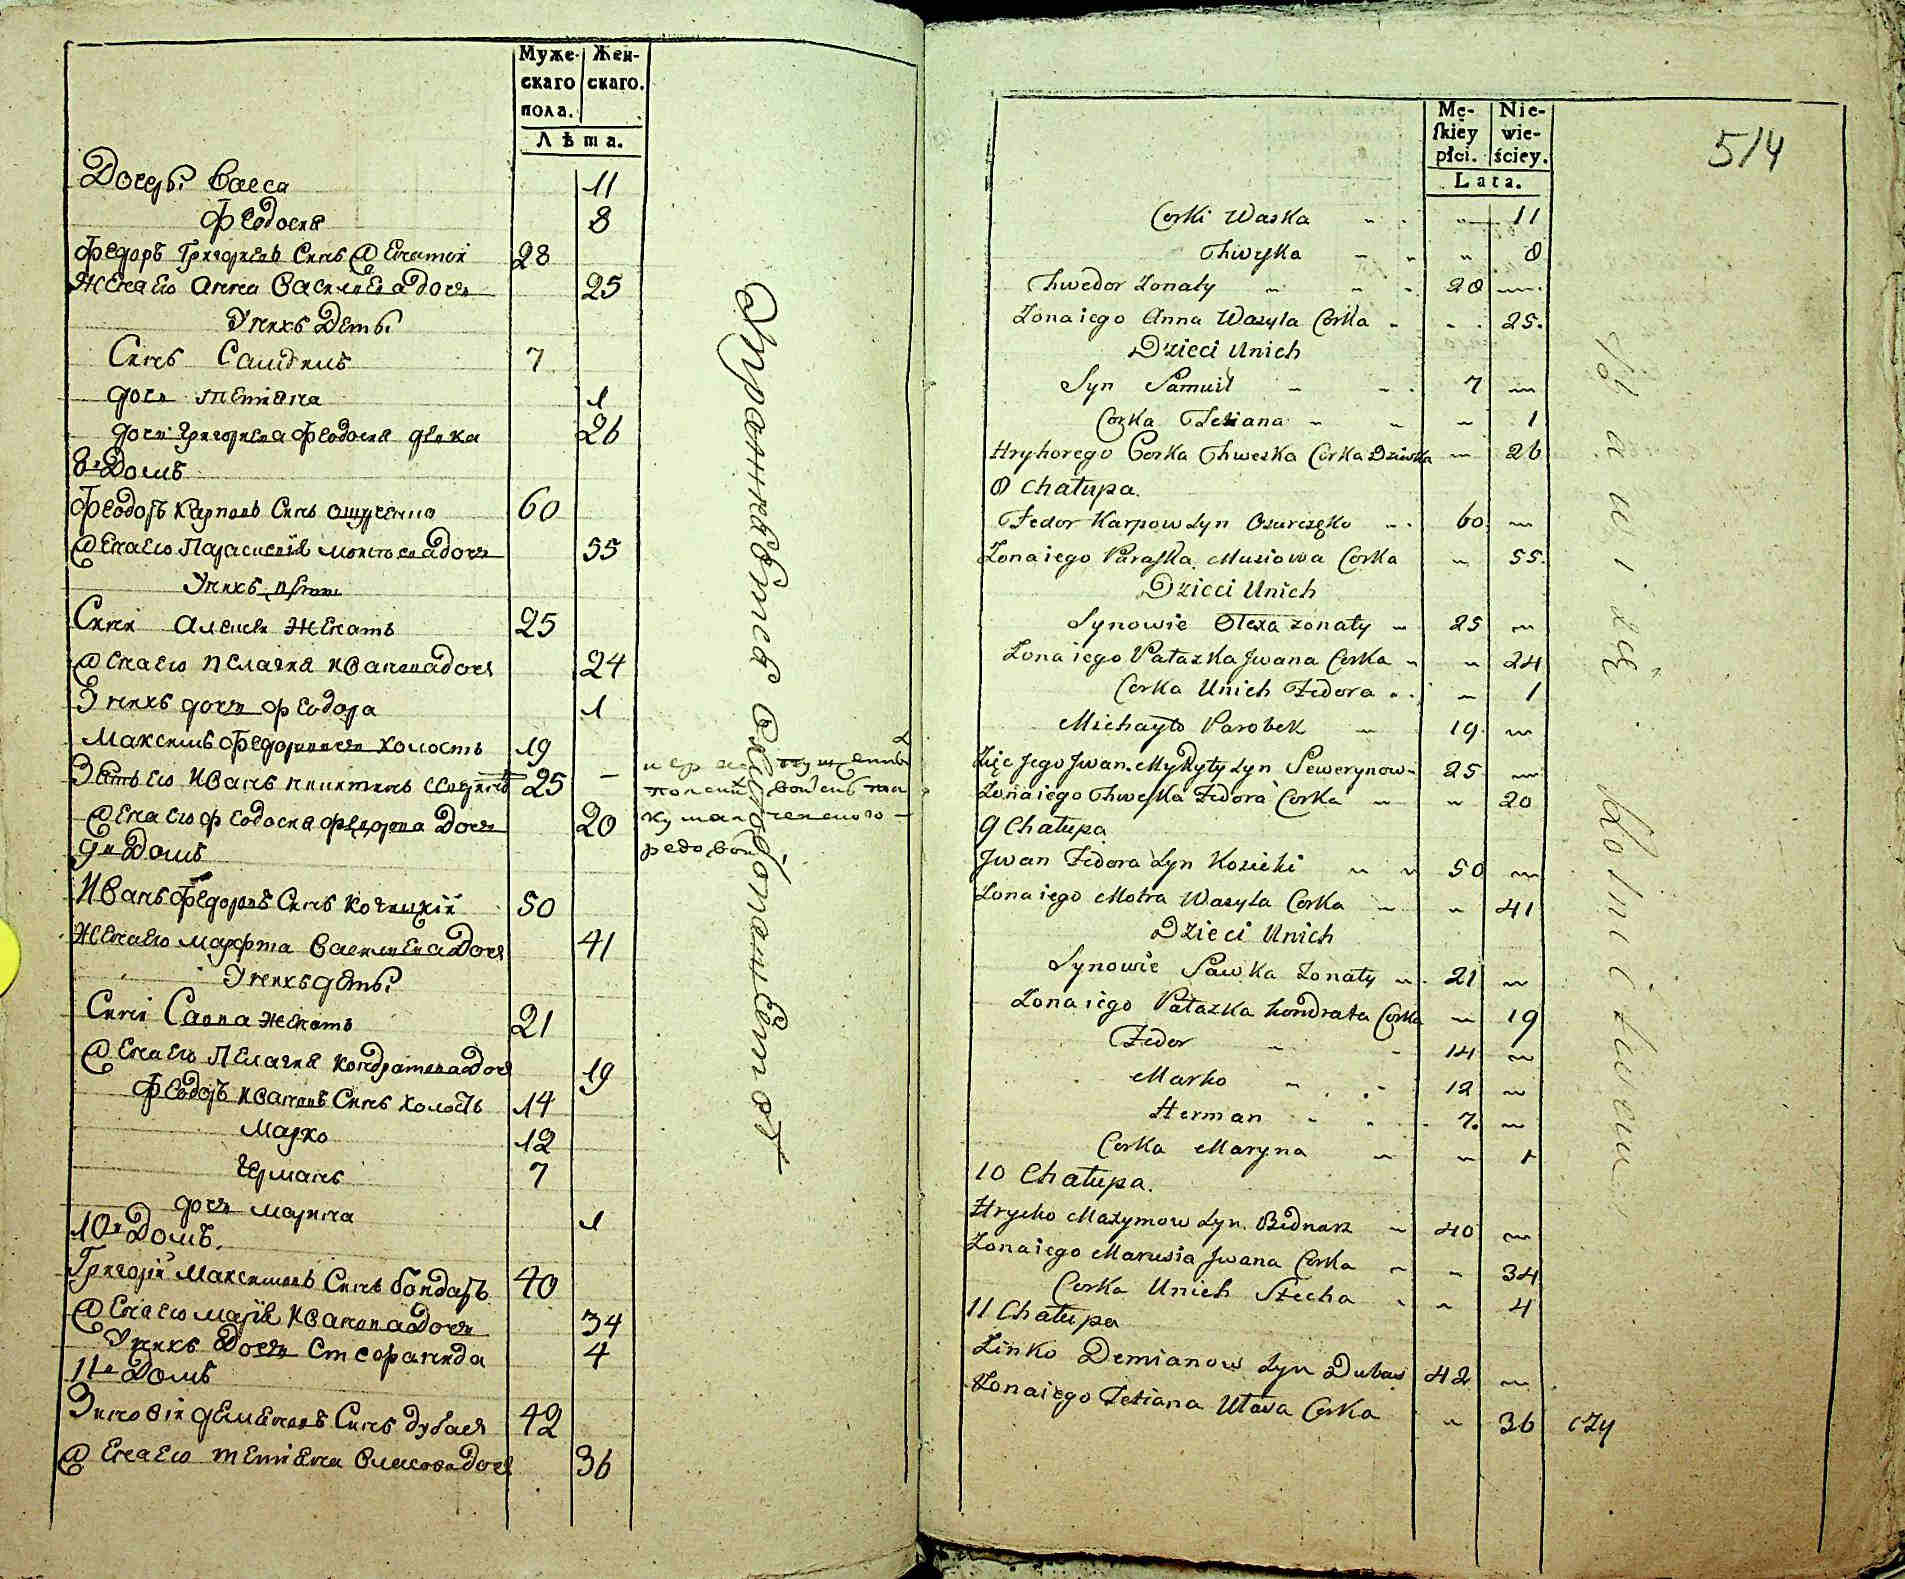 Муже-
скаго
пола.
Жен-
скаго.
Лѣта.
Дочерѣ Васса 11
Феодосия 8
Федоръ Григориевъ Сынъ Женатой 28
Жена его Анна Василиева дочь 25
У нихъ Дети
Сынъ Самуилъ 7
дочь Тетиана 1
дочь Григориева Феодосия девка 26
8й Домъ
Феодоръ Карповъ Сынъ 60
Жена его Параскевия дочь 55
У нихъ дети
Сыни Алексей Женатъ 25
Жена его Пелагия Иванова дочь 24
У нихъ дочь Феодора 1
Максимъ Федоровъ холостъ 19
Зять его Иванъ Никитинъ 25 –
Жена его Феодосия Федорова Дочь 20
9й Домъ
Иванъ Федоровъ Сынъ Козицкий 50
Жена его Марфта Василиева Дочь 41
У нихъ дети
Сыни Савва Женатъ 21
Жена его Пелагия Кондратова Дочь 19
Феодоръ Ивановъ Сынъ холостъ 14
Марко 12
Германъ 7
дочь Марина 1
10й Домъ
Григорий Максимовъ Сынъ бондаръ 40
Жена его Мария Иванова Дочь 34
У нихъ Дочь Стефанида 4
11й Домъ
Зиновий Демяновъ Сынъ дубасъ 42
Жена его Тетиана Власова Дочь 36
Упражняются Хлебопашествомъ
Mę-
skiey
płci.
Nie-
wie-
ściey.
Lata.
514
Corki Waska " 11
Thweska " 8
Thwedor Zonaty 28
Zona iego Anna Wasyla Corka 25.
Dzieci Unich
Syn Samuil 7
Corka Tetiana 1
Hryhorego Corka Thweska Corka Dziewka 26
8 Chałupa.
Fedor Karpow Syn 60
Zona iego Paraska Musiowa Corka 55.
Dzieci Unich
Synowie Olexa zonaty 25
Zona iego Pałazka Jwana Corka 24
Corka Unich Fedora 1
Michayło Parobek 19
Zięc Jego Jwan Mykyty Syn Sewerynow 25
Zona iego Thweska Fedora Corka 20
9 Chałupa
Jwan Fedora Syn Kosicki 50
Zona iego Motra Wasyla Corka 41
Dzieci Unich
Synowie Sawka Zonaty 21
Zona iego Pałazka Kondrata Corka 19
Fedor 14
Marko 12
Herman 7.
Corka Maryna 1
10 Chałupa.
Hrycko Maxymow Syn Bednarz 40
Zona iego Marusia Jwana Corka 34
Corka Unich Stecha 4
11 Chałupa
Zinko Demianow Syn Dubas 42
Zona iego Tetiana Własa Corka 36
czy